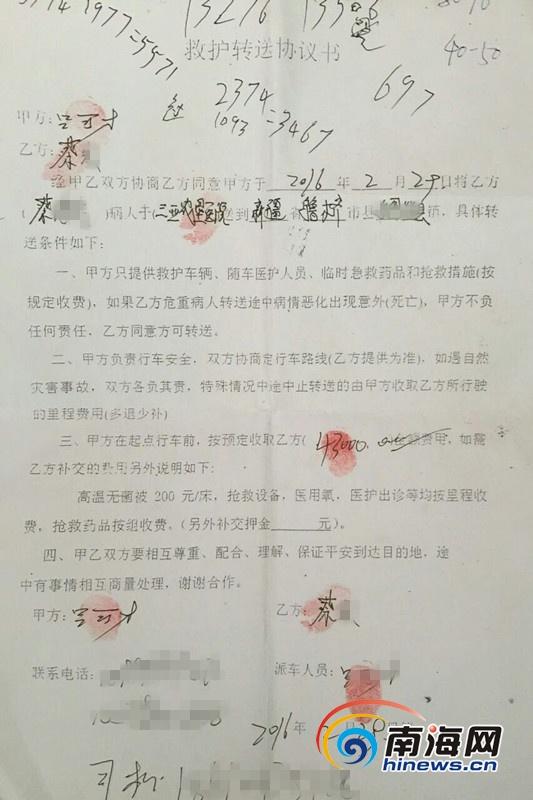 3774 1977=5571
13276
救护转送协议书
40-50
2374
697
1093=3467
甲方：
乙方：蔡
经甲乙双方协商乙方同意甲方于 2016 年 2 月 29 日将乙方
（蔡 ）病人于（三亚 医院送到 新疆 市县 镇，具体转
送条件如下：
一、甲方只提供救护车辆、随车医护人员、临时急救药品和抢救措施(按
规定收费)，如果乙方危重病人转送途中病情恶化出现意外(死亡)，甲方不负
任何责任，乙方同意方可转送。
二、甲方负责行车安全，双方协商定行车路线(乙方提供为准)，如遇自然
灾害事故，双方各负其责，特殊情况中途中止转送的由甲方收取乙方所行驶
的里程费用(多退少补)
三、甲方在起点行车前，按预定收取乙方（ 43000. 费用，如需
乙方补交的费用另外说明如下：
高温无菌被 200 元/床，抢救设备，医用氧，医护出诊等均按里程收
费，抢救药品按组收费。（另外补交押金______元）。
四、甲乙双方要相互尊重、配合、理解、保证平安到达目的地，途
中有事情相互商量处理，谢谢合作。
甲方： 乙方：蔡
联系电话： 派车人员：
2016 年
司机
南海网
hinews.cn